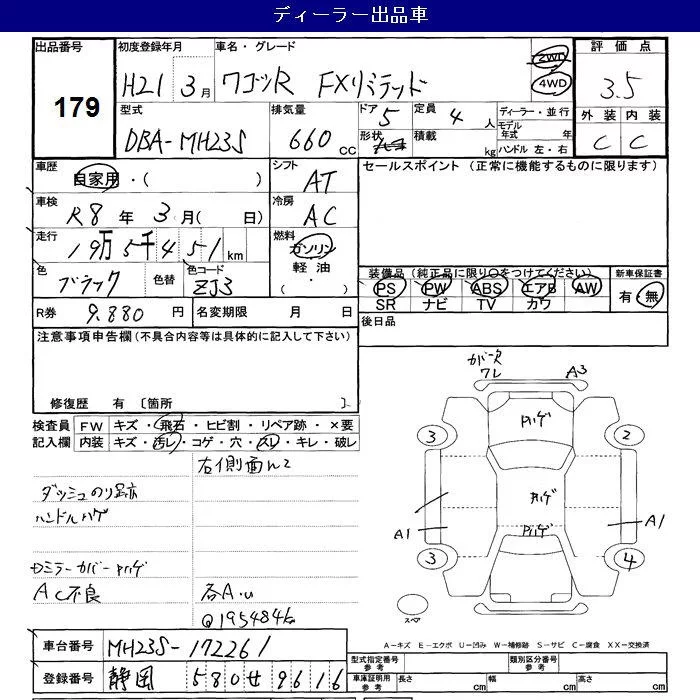 ディーラー出品車
出品番号
179
初度登録年月
H21 3月
車名・グレード
ワゴンR FXリミテッド
2WD
4WD
評価点
3.5
型式
DBA-MH23S
排気量
660 cc
ドア 5
形状
定員 4 人
積載 kg
ディーラー・並行
モデル年式 年
ハンドル 左・右
外装 内装
C C
車歴
自家用・( )
シフト
AT
セールスポイント (正常に機能するものに限ります)
車検
R8年3月( 日)
冷房
AC
走行
19万5千451km
燃料
ガソリン
軽油
( ・ )
色
ブラック
色替
色コード
ZJ3
装備品(純正品に限り○をつけてください)
PS PW ABS エアB AW
SR ナビ TV カワ
新車保証書
有・無
R券 9,880円
名変期限 月 日
後日品
注意事項申告欄(不具合内容等は具体的に記入して下さい)
修復歴 有 〔箇所 〕
検査員 FW キズ・飛石・ヒビ割・リペア跡・×要
記入欄 内装 キズ・汚レ・コゲ・穴・スレ・キレ・破レ
右側面
ダッシュのり跡
ハンドルハゲ
ミラーカバー
AC不良
Q195484k
カバー欠
ワレ
A3
3
2
A1
A1
3
4
スペア
A-キズ E-エクボ U-凹み W-補修跡 S-サビ C-腐食 XX-交換済
車台番号 MH23S-172261
登録番号 静岡 580 せ 9616
型式指定番号
参考
類別区分番号
参考
車庫証明用
参考
長さ cm
幅 cm
高さ cm